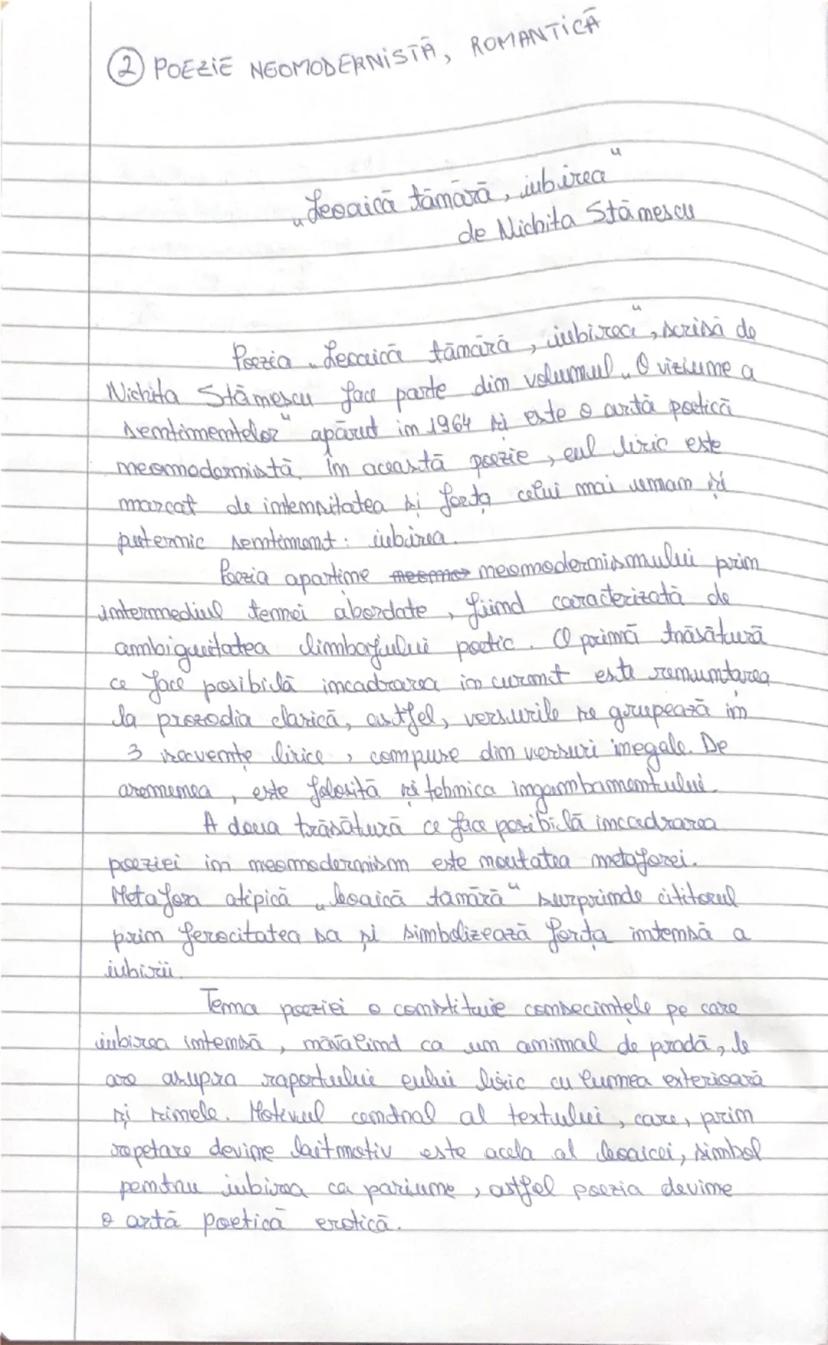 ② POEZIE NEOMODERNISTĂ, ROMANTICĂ
„Leoaică tânără, iubirea"
de Nichita Stănescu
Poezia „Leoaică tânără, iubirea", scrisă de
Nichita Stănescu face parte din volumul „O viziune a
sentimentelor" apărut în 1964 și este o artă poetică
neomodernistă. În această poezie, eul liric este
marcat de intensitatea și forța celui mai uman și
puternic sentiment: iubirea.
Poezia aparține neomodernismului prin
intermediul temei abordate, fiind caracterizată de
ambiguitatea limbajului poetic. O primă trăsătură
ce face posibilă încadrarea în curent este renunțarea
la prozodia clasică, astfel, versurile se grupează în
3 secvențe lirice, compuse din versuri inegale. De
asemenea, este folosită și tehnica ingambamentului.
A doua trăsătură ce face posibilă încadrarea
poeziei în neomodernism este noutatea metaforei.
Metafora atipică „leoaică tânără" surprinde cititorul
prin ferocitatea sa și simbolizează forța intensă a
iubirii.
Tema poeziei o constituie consecințele pe care
iubirea intensă, năvălind ca un animal de pradă, le
are asupra raportului eului liric cu lumea exterioară
și sinele. Motivul central al textului, care, prin
repetare devine laitmotiv este acela al leoaicei, simbol
pentru iubirea ca pasiune, astfel poezia devine
o artă poetică erotică.